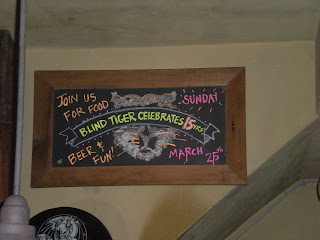 JOIN US
FOR FOOD
SUNDAY
BLIND TIGER CELEBRATES 15 YRS!
BEER &
FUN!
MARCH 25th